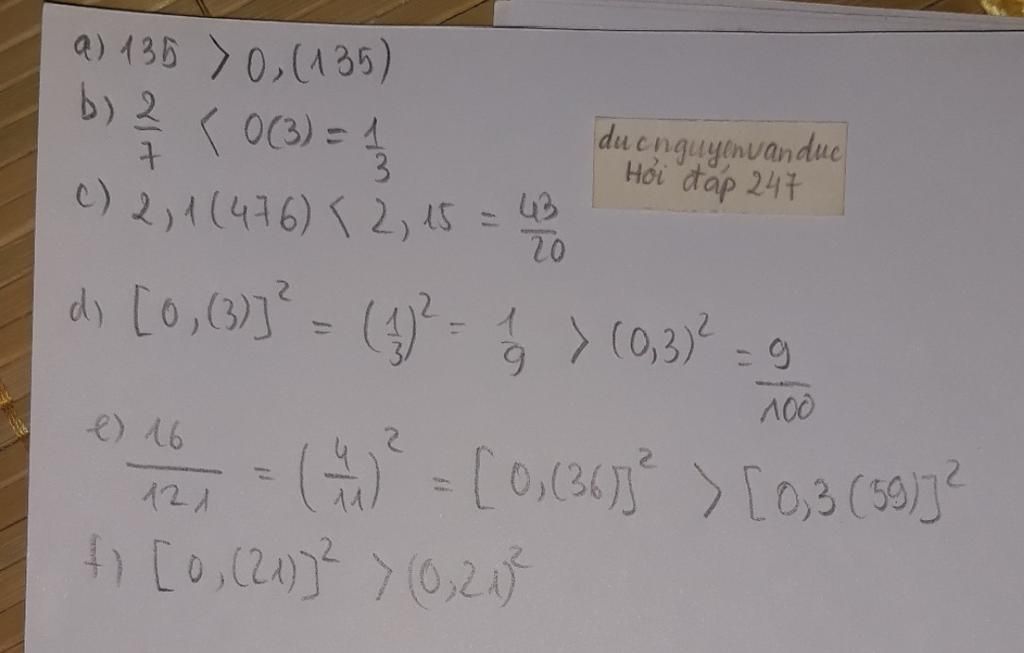 a) 135 > 0,(135)
b) 2/7 < 0(3) = 1/3
ducnguyenvanduc
Hỏi đáp 247
c) 2,1(476) < 2,15 = 43/20
d) [0,(3)]² = (1/3)² = 1/9 > (0,3)² = 9/100
e) 16/121 = (4/11)² = [0,(36)]² > [0,3(59)]²
f) [0,(21)]² > (0,21)²